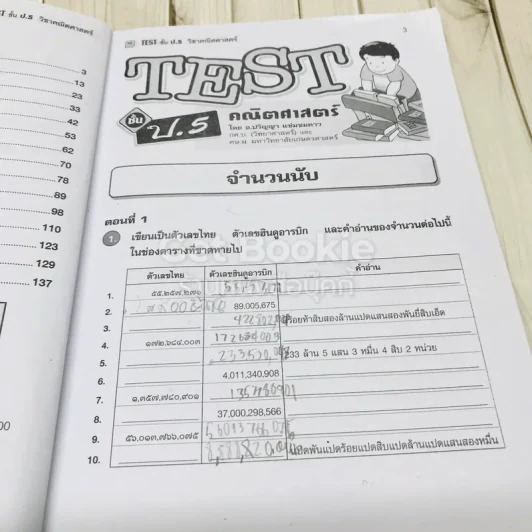 TEST ชั้น ป.5 วิชาคณิตศาสตร์
3
13
23
33
42
53
62
70
78
89
98
110
123
129
137
00
TEST ชั้น ป.5 วิชาคณิตศาสตร์
3
TEST
ชั้น ป.5
คณิตศาสตร์
โดย อ.ปริญญา
กศ.บ. (วิทยาศาสตร์) และ
ศษ.ม. มหาวิทยาลัยเกษตรศาสตร์
จำนวนนับ
ตอนที่ 1
1. เขียนเป็นตัวเลขไทย ตัวเลขฮินดูอารบิก และคำอ่านของจำนวนต่อไปนี้
ในช่องตารางที่ขาดหายไป
Bookie
ตัวเลขไทย ตัวเลขฮินดูอารบิก คำอ่าน
1. ๕๕,๒๕๗,๒๗๑
2. 89,005,675
3. ร้อยห้าสิบสองล้านแปดแสนสองพันยี่สิบเอ็ด
4. ๑๗๒,๖๔๔,๐๐๓
5. 233 ล้าน 5 แสน 3 หมื่น 4 สิบ 2 หน่วย
6. 4,011,340,908
7. ๑,๓๕๗,๗๔๐,๙๐๑
8. 37,000,298,566
9. ๕๖,๐๑๓,๗๖๖,๐๗๕
10. แปดพันแปดร้อยแปดสิบแปดล้านแปดแสนสองหมื่น